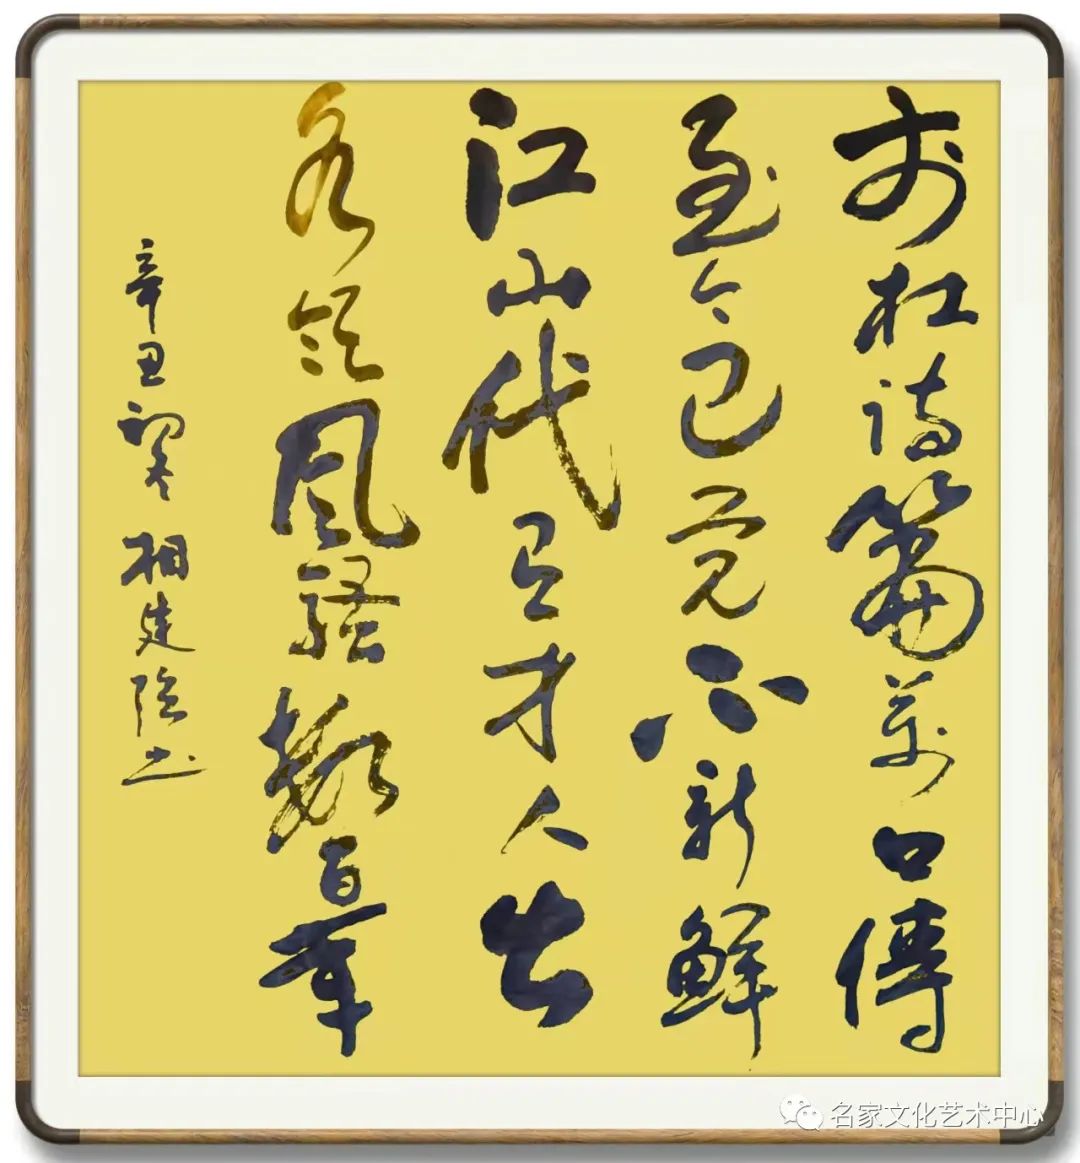 李杜诗篇萬口傳
至今已觉不新鲜
江山代有才人出
各领風骚數百年
辛丑 相建 书
名家文化艺术中心